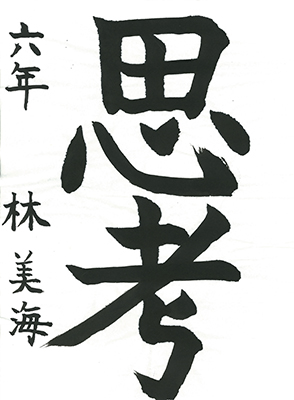 思考
六年 林 美海